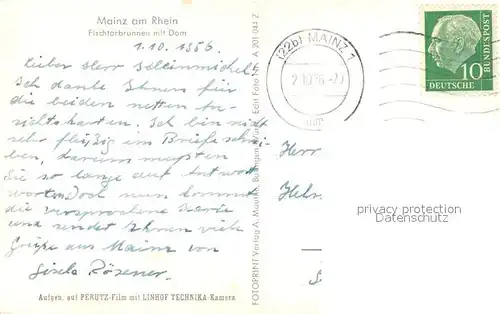 Mainz am Rhein
Fischtorbrunnen mit Dom
1.10.1956.
Lieber Herr
Ich danke Ihnen für
die beiden netten An-
sichtskarten. Ich bin nicht
sehr fleißig im Briefe schrei-
ben, darum mußten
Sie so lange auf Antwort
warten. Doch nun kommt
die versprochene Karte
und sendet Ihnen viele
Grüße aus Mainz von
Gisela Rösener.
Aufgen. auf PERUTZ-Film mit LINHOF TECHNIKA-Kamera
FOTOPRINT Verlag A. Echt Foto Nr. A 201 044 Z
(22b) MAINZ 1
DEUTSCHE
BUNDESPOST
10
Herr
privacy protection
Datenschutz